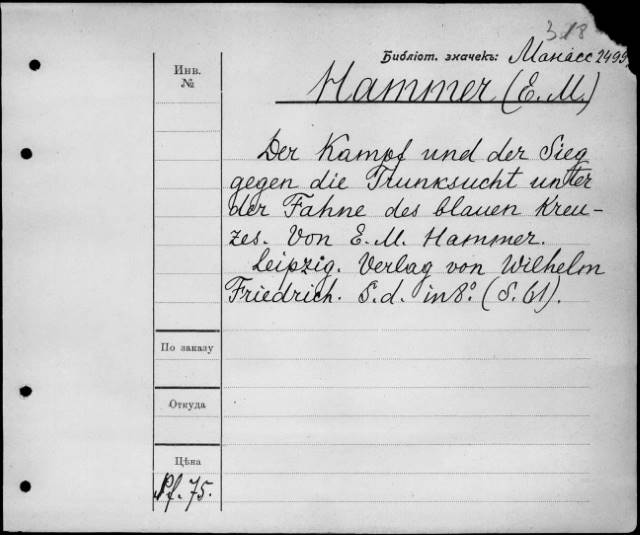 3.18
Библіот. значекъ: Манасс 2499
Инв.
№
Hammer (E. M.)
Der Kampf und der Sieg
gegen die Trunksucht unter
der Fahne des blauen Kreu-
zes. Von E. M. Hammer.
Leipzig. Verlag von Wilhelm
Friedrich. S. d. in 8º. (S. 61).
По заказу
Откуда
Цѣна
Pf. 75.